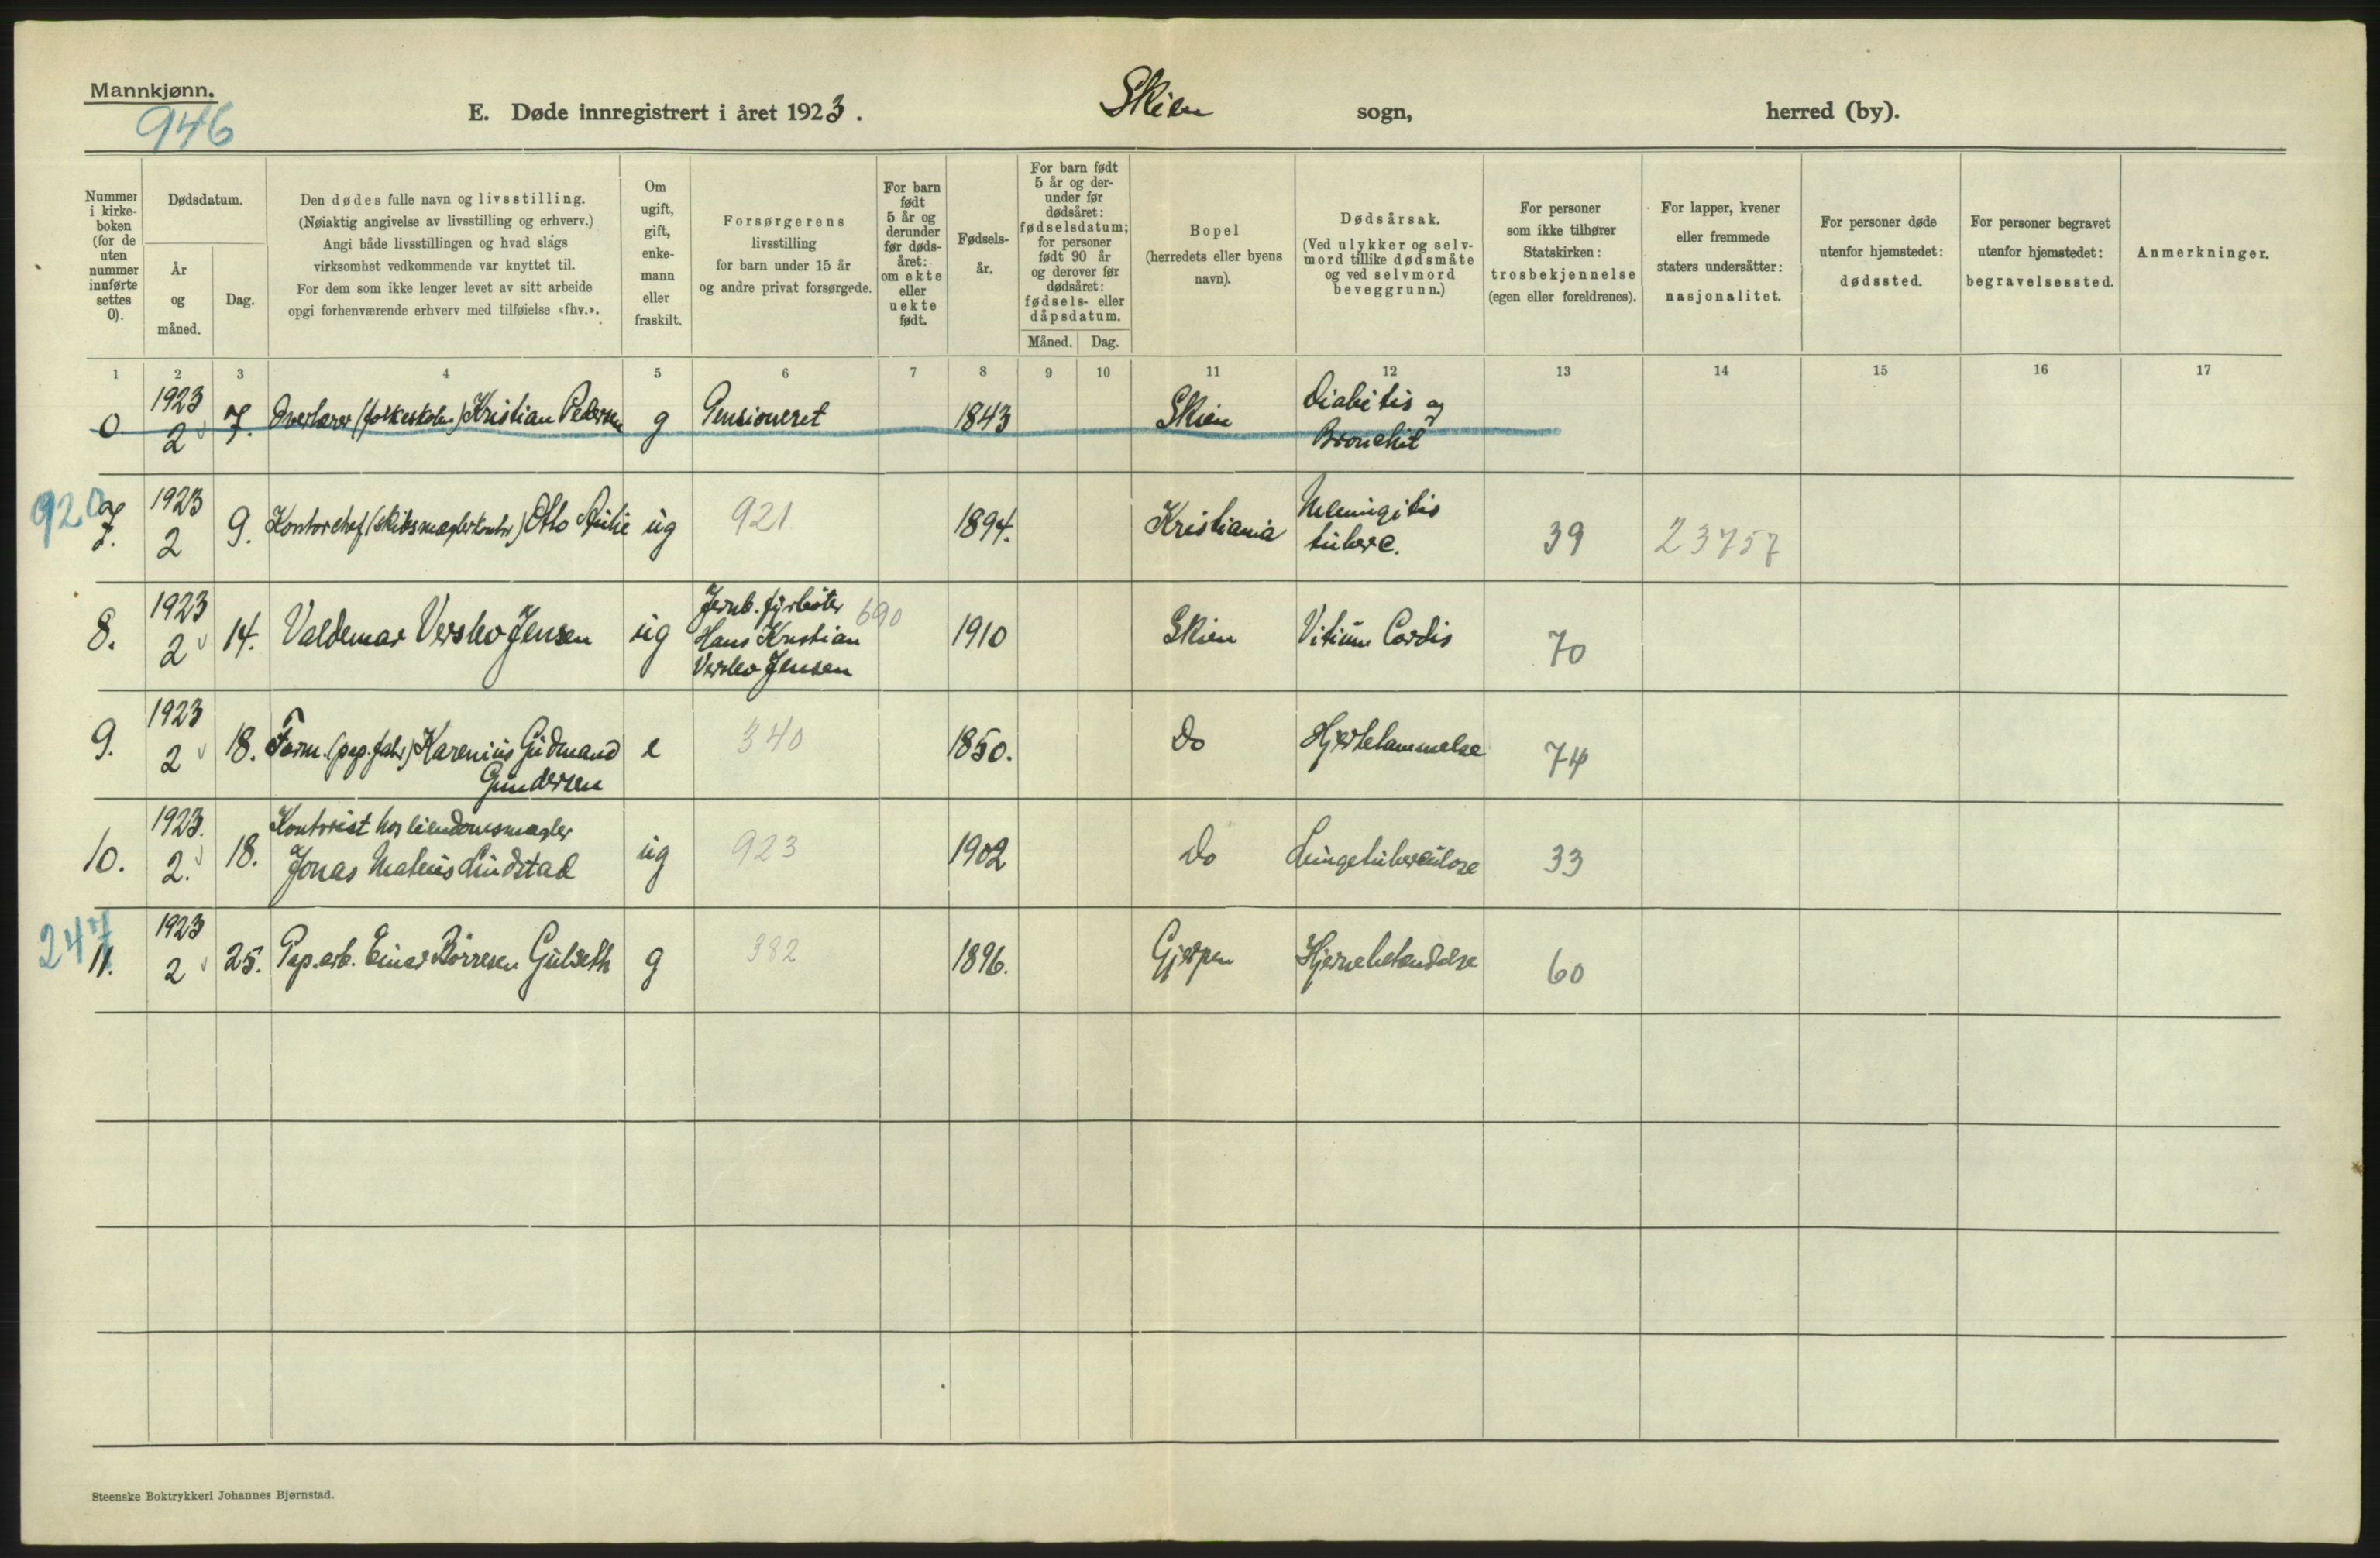 Mannkjønn.
946
E. Døde innregistrert i året 1923. Skien sogn, herred (by).
Nummer i kirkeboken (for de uten nummer innførte settes 0).
Dødsdatum.
År og måned.
Dag.
Den dødes fulle navn og livsstilling.
(Nøiaktig angivelse av livsstilling og erhverv.)
Angi både livsstillingen og hvad slags
virksomhet vedkommende var knyttet til.
For dem som ikke lenger levet av sitt arbeide
opgi forhenværende erhverv med tilføielse «fhv.».
Om ugift, gift, enkemann eller fraskilt.
Forsørgerens
livsstilling
for barn under 15 år
og andre privat forsørgede.
For barn født 5 år og derunder før dødsåret: om ekte eller uekte født.
Fødselsår.
For barn født 5 år og derunder før dødsåret: fødselsdatum; for personer født 90 år og derover før dødsåret: fødsels- eller dåpsdatum.
Måned. Dag.
Bopel
(herredets eller byens
navn).
Dødsårsak.
(Ved ulykker og selvmord tillike dødsmåte og ved selvmord beveggrunn.)
For personer
som ikke tilhører
Statskirken:
trosbekjennelse
(egen eller foreldrenes).
For lapper, kvener
eller fremmede
staters undersåtter:
nasjonalitet.
For personer døde
utenfor hjemstedet:
dødssted.
For personer begravet
utenfor hjemstedet:
begravelsessted.
Anmerkninger.
1 2 3 4 5 6 7 8 9 10 11 12 13 14 15 16 17
0 1923 2 7. Overlærer (folkeskolen) Kristian Pedersen g Pensioneret 1843 Skien Diabetis og Bronchit
920
7. 1923 2 9. Kontorchef (skibsmæglerkontor) Otto ug 921 1894. Kristiania Meningitis tuberc. 39 23757
8. 1923 2 14. Valdemar Verslev Jensen ug Jernb. fyrbøter Hans Kristian Verslev Jensen 690 1910 Skien Vitium Cordis 70
9. 1923 2 18. Form. (pap.fabr) Karenius Gudmand Gundersen e 340 1850. Do Hjertelammelse 74
10. 1923. 2. 18. Kontorist hos eiendomsmægler Jonas Mateus Lindstad ug 923 1902 Do Lungetuberculose 33
247
11. 1923 2 25. Pap.arb. Einar Børresen Gulseth g 382 1896. Gjerpen Hjernebetændelse 60
Steenske Boktrykkeri Johannes Bjørnstad.